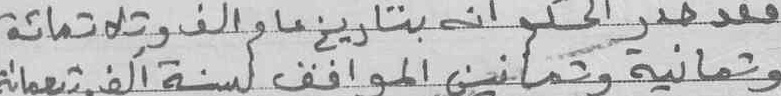 فقد صدر الحكم انه بتاريخ عام والف وتلاتمائة
وتمانية وتمانين الموافف لسنة ألف وتسعمائة